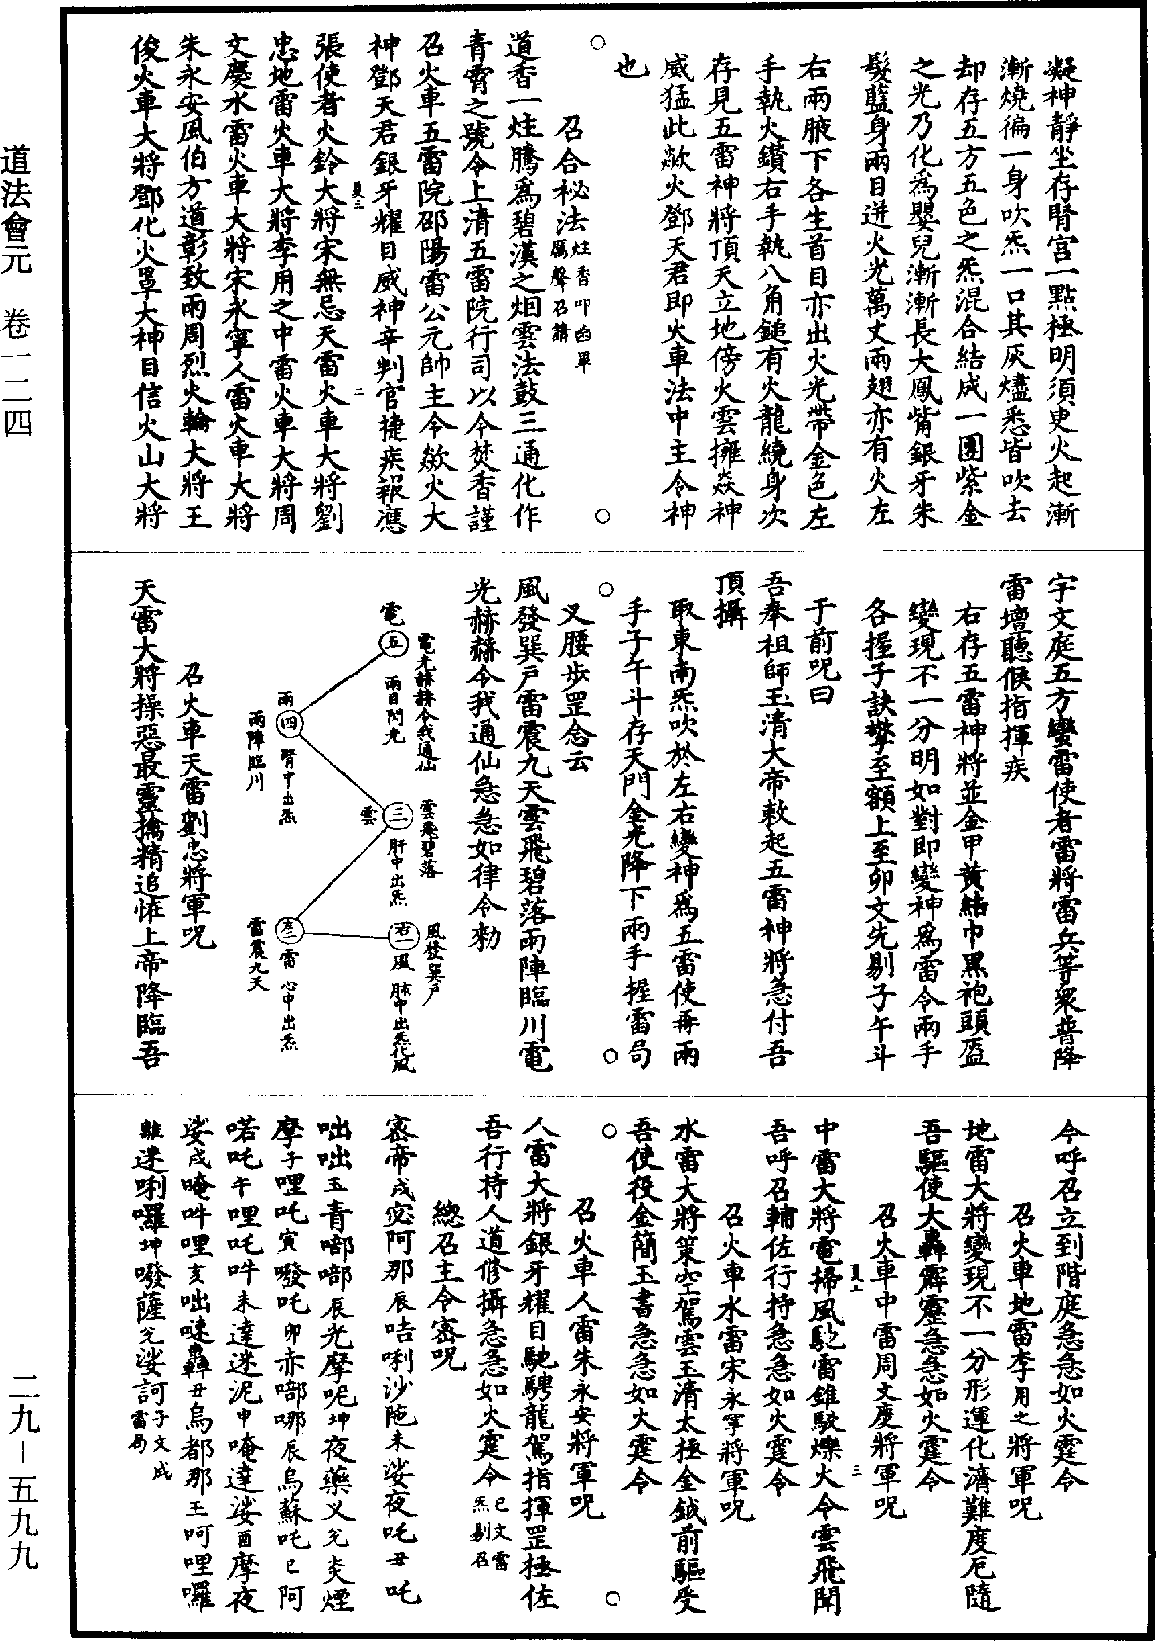 道法會元　卷一二四
二九－五九九
凝神靜坐存腎宮一點極明須臾火起漸
漸燒徧一身吹炁一口其灰燼悉皆吹去
却存五方五色之炁混合結成一團紫金
之光乃化爲嬰兒漸漸長大鳳觜銀牙朱
髮藍身兩目迸火光萬丈兩翅亦有火左
右兩腋下各生首目亦出火光帶金色左
手執火鑽右手執八角鎚有火龍繞身次
存見五雷神將頂天立地傍火雲擁焱神
威猛此欻火鄧天君即火車法中主令神
也
召合祕法炷香叩齒畢厲聲召請
道香一炷騰爲碧漢之烟雲法鼓三通化作
青霄之號令上清五雷院行司以今焚香謹
召火車五雷院邵陽雷公元帥主令欻火大
神鄧天君銀牙耀目威神辛判官捷疾報應
張使者火鈴大將宋無忌天雷火車大將劉
忠地雷火車大將李用之中雷火車大將周
文慶水雷火車大將宋永寧人雷火車大將
朱永安風伯方道彰致雨周烈火輪大將王
俊火車大將鄧化火罩大神目信火山大將
宇文庭五方蠻雷使者雷將雷兵等衆普降
雷壇聽候指揮疾
右存五雷神將並金甲黃結巾黑袍頭盔
變現不一分明如對即變神爲雷令兩手
各握子訣擎至額上至卯文先剔子午斗
于前呪曰
吾奉祖師玉清大帝敕起五雷神將急付吾
頂攝
取東南炁吹於左右變神爲五雷使再兩
手子午斗存天門金光降下兩手握雷局
叉腰步罡念云
風發巽戶雷震九天雲飛碧落雨陣臨川電
光赫赫令我通仙急急如律令勑
電　五　電光赫赫令我通仙　兩目閃光
雨　四　雨陣臨川　腎中出炁
雲　三　雲飛碧落　肝中出炁
雷　雷震九天　心中出炁
一　風　風發巽戶　肺中出炁化風
召火車天雷劉忠將軍呪
天雷大將操惡最靈擒精追怪上帝降臨吾
今呼召立到階庭急急如火霆令
召火車地雷李用之將軍呪
地雷大將變現不一分形運化濟難度厄隨
吾驅使大轟霹靂急急如火霆令
召火車中雷周文慶將軍呪
中雷大將電掃風馳雷錐駿爍火令雲飛聞
吾呼召輔佐行持急急如火霆令
召火車水雷宋永寧將軍呪
水雷大將策空駕雲玉清太極金鉞前驅受
吾使役金簡玉書急急如火霆令
召火車人雷朱永安將軍呪
人雷大將銀牙耀目馳騁龍駕指揮罡極佐
吾行持人道修攝急急如火霆令巳文雷炁剔召
總召主令密呪
密帝戌宓阿那辰咭唎沙陁未娑夜吒丑吒
咄咄玉青啣啣辰光摩呢坤夜藥叉兊炎煙
摩子哩吒寅㗶吒卯赤啣哪辰烏蘇吒巳阿
喏吒午哩吒吽未達迷泥申唵達娑酉摩夜
娑戌唵吽哩亥咄嗹轟丑烏都那王呵哩囉
離達唎囉坤㗶薩兊娑訶子文戌雷局